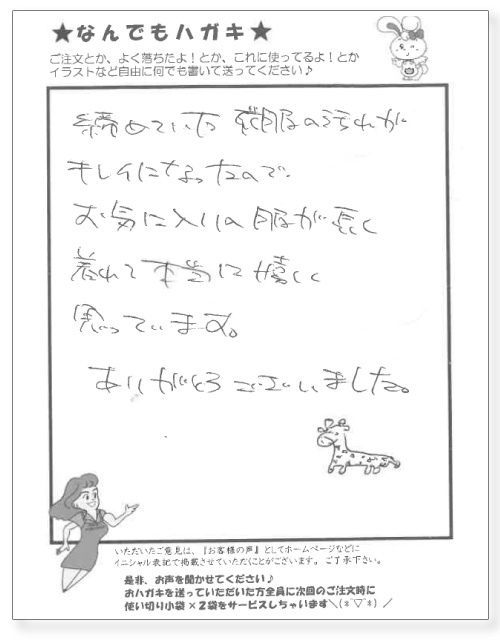 ★なんでもハガキ★
ご注文とか、よく落ちたよ！とか、これに使ってるよ！とか
イラストなど自由に何でも書いて送ってください♪
締めていた 衣服の汚れが
キレイになったので、
お気に入りの服が長く
着れて本当に嬉しく
思っています。
ありがとうございました。
いただいたご意見は、『お客様の声』としてホームページなどに
イニシャル表記で掲載させていただくことがございます。ご了承下さい。
是非、お声を聞かせてください♪
おハガキを送っていただいた方全員に次回のご注文時に
使い切り小袋×2袋をサービスしちゃいます＼(*￣▽￣*)／